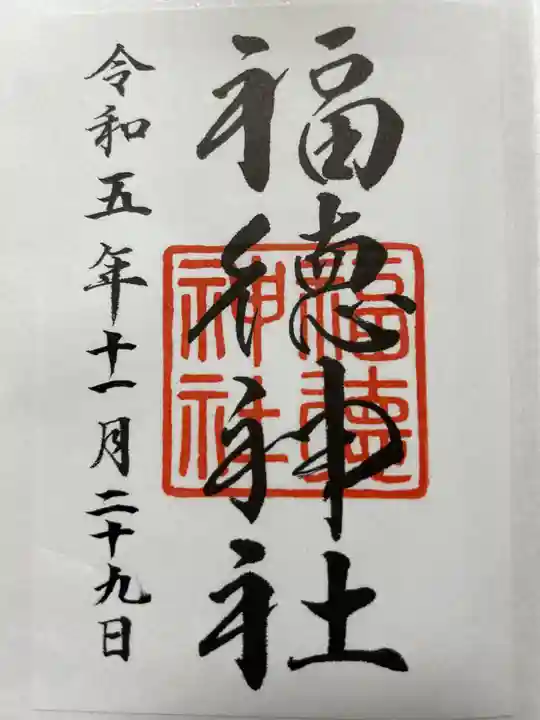 福徳神社
福徳
神社
令和五年十一月二十九日